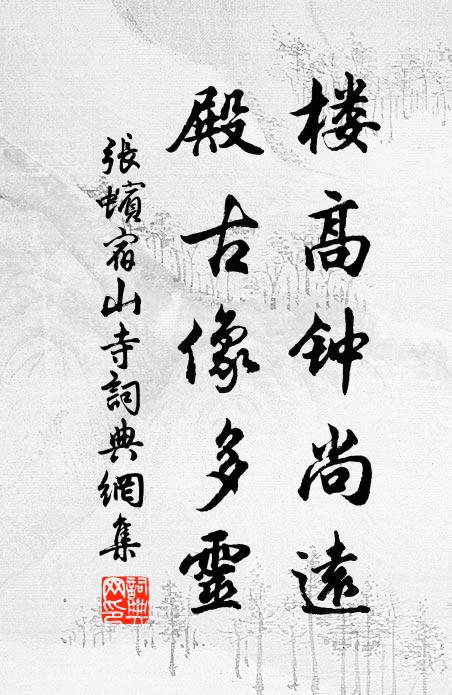 楼高钟尚遠
殿古像多靈
張蠙宿山寺詞典網集
詞典网印